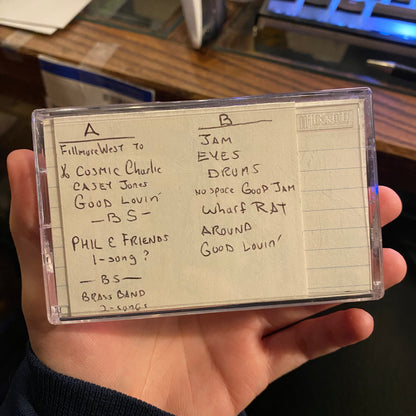 A
Fillmore West 70
% COSMIC Charlie
CASEY Jones
GOOD LOVIN'
—BS—
PHIL & FRIENDS
1-song?
—BS—
BRASS BAND
2-SONGS
B
JAM
EYES
DRUMS
NO SPACE GOOD JAM
Wharf RAT
AROUND
GOOD LOVIN'